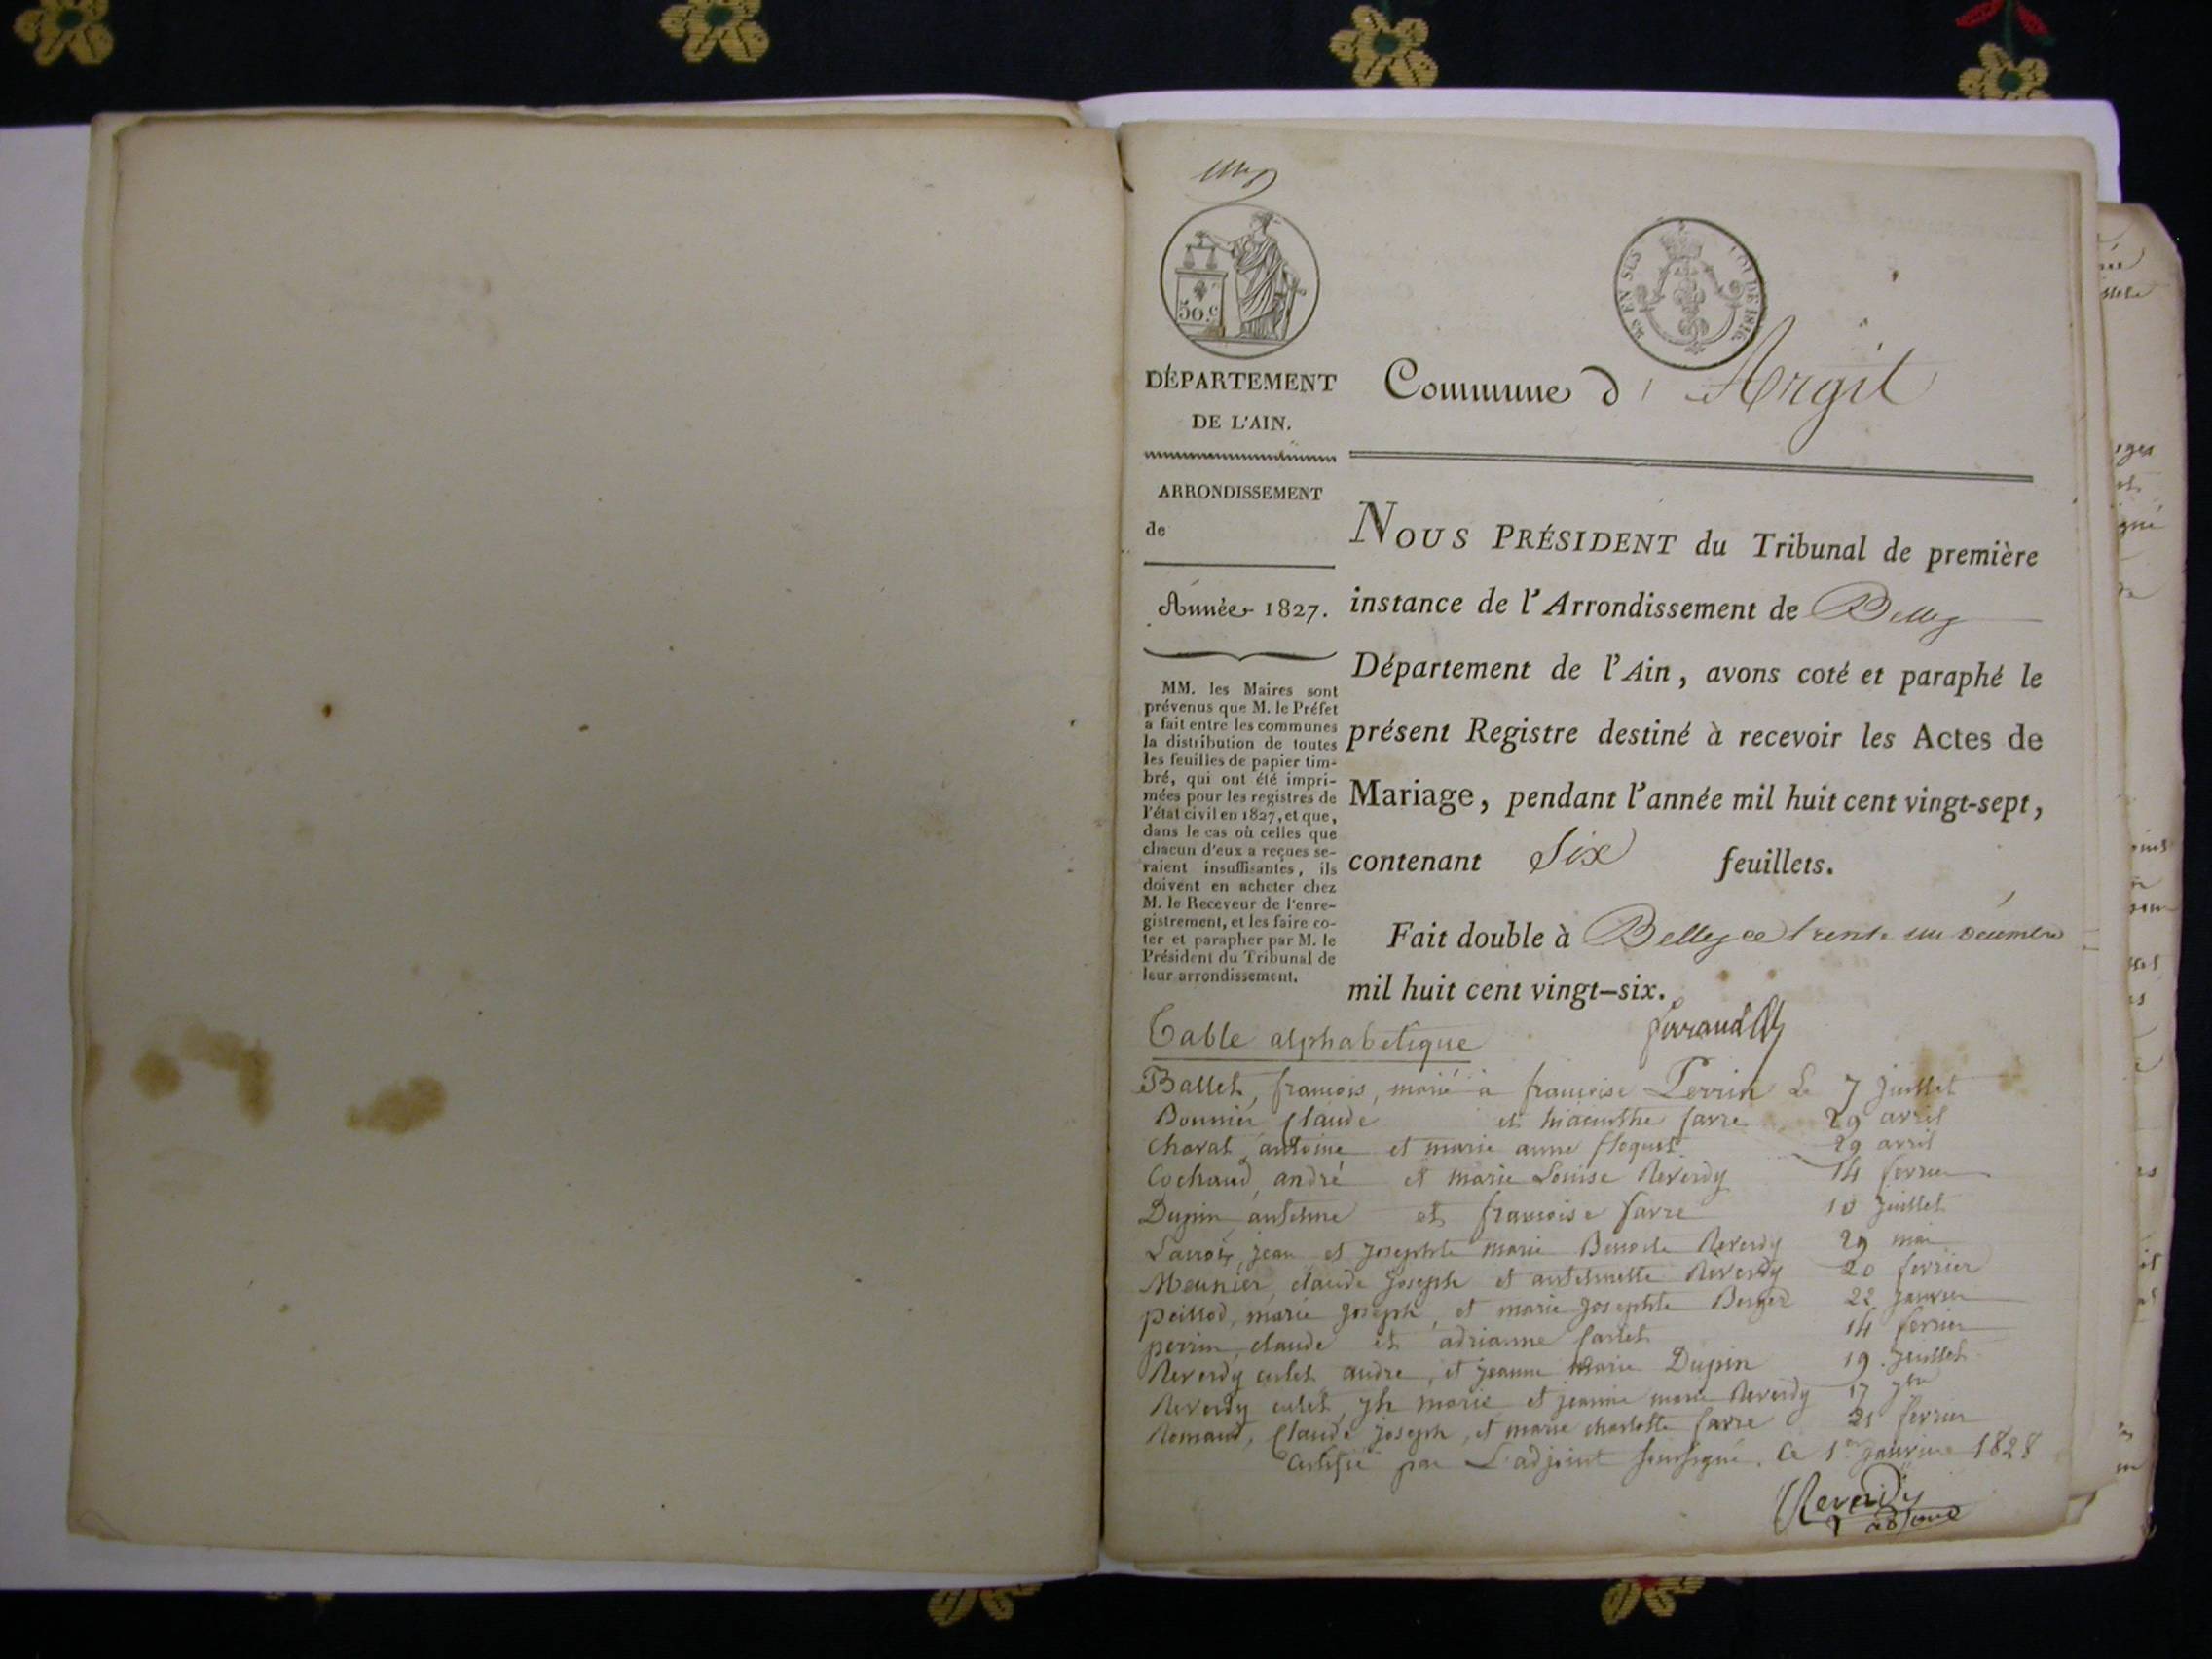 50.c
EN SUS
LOI DE 1816
DÉPARTEMENT
DE L'AIN.
Commune d' Argit
ARRONDISSEMENT
de
Année 1827.
MM. les Maires sont
prévenus que M. le Préfet
a fait entre les communes
la distribution de toutes
les feuilles de papier tim-
bré, qui ont été impri-
mées pour les registres de
l'état civil en 1827, et que,
dans le cas où celles que
chacun d'eux a reçues se-
raient insuffisantes, ils
doivent en acheter chez
M. le Receveur de l'enre-
gistrement, et les faire co-
ter et parapher par M. le
Président du Tribunal de
leur arrondissement.
NOUS PRÉSIDENT du Tribunal de première
instance de l'Arrondissement de Belley
Département de l'Ain, avons coté et paraphé le
présent Registre destiné à recevoir les Actes de
Mariage, pendant l'année mil huit cent vingt-sept,
contenant Six feuillets.
Fait double à Belley ce trente un décembre
mil huit cent vingt-six.
Table alphabetique
Ballet, francois, marié à françoise Perrin Le 7 Juillet
Bonnier claude et hiacinthe favre 29 avril
Charat antoine et marie anne floquet 29 avril
Cochaud, andré et marie Louise Reverdy 14 fevrier
Dupin antelme et francoise favre 10 Juillet
Lacroix, jean et Josephte marie Benoite Reverdy 29 mai
Meunier, claude Joseph et antelmette Reverdy 20 fevrier
peillod, marie Joseph, et marie Josephte Berger 22 Janvier
perrin, claude et adrianne 14 fevrier
Reverdy culet andre, et jeanne marie Dupin 19 Juillet
Reverdy culet, jh marie et jeanne marie Reverdy 17 7bre
Romand, Claude joseph, et marie charlotte favre 21 fevrier
Certifié par L'adjoint soussigné. Ce 1er janvier 1828
Reverdy
adjoint